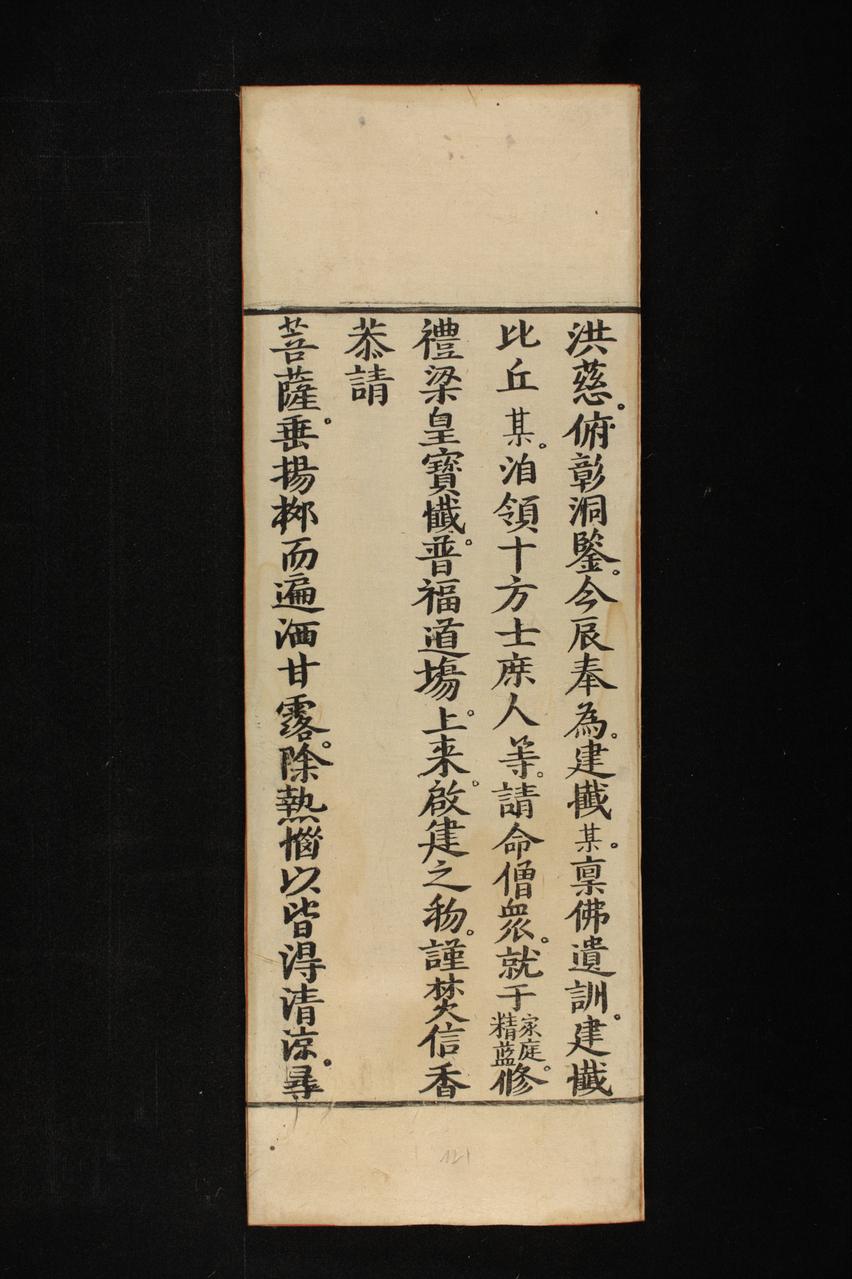 洪慈。俯彰洞鑒。今辰奉為。建懴某。稟佛遺訓。建懴
比丘某。洎領十方士庶人等。請命僧衆。就于家庭精藍。修
禮梁皇寶懴。普福道塲。上来。啟建之初。謹焚信香
恭請
菩薩。垂揚栁而遍洒甘露。除熱惱以皆淂清凉。尋
121